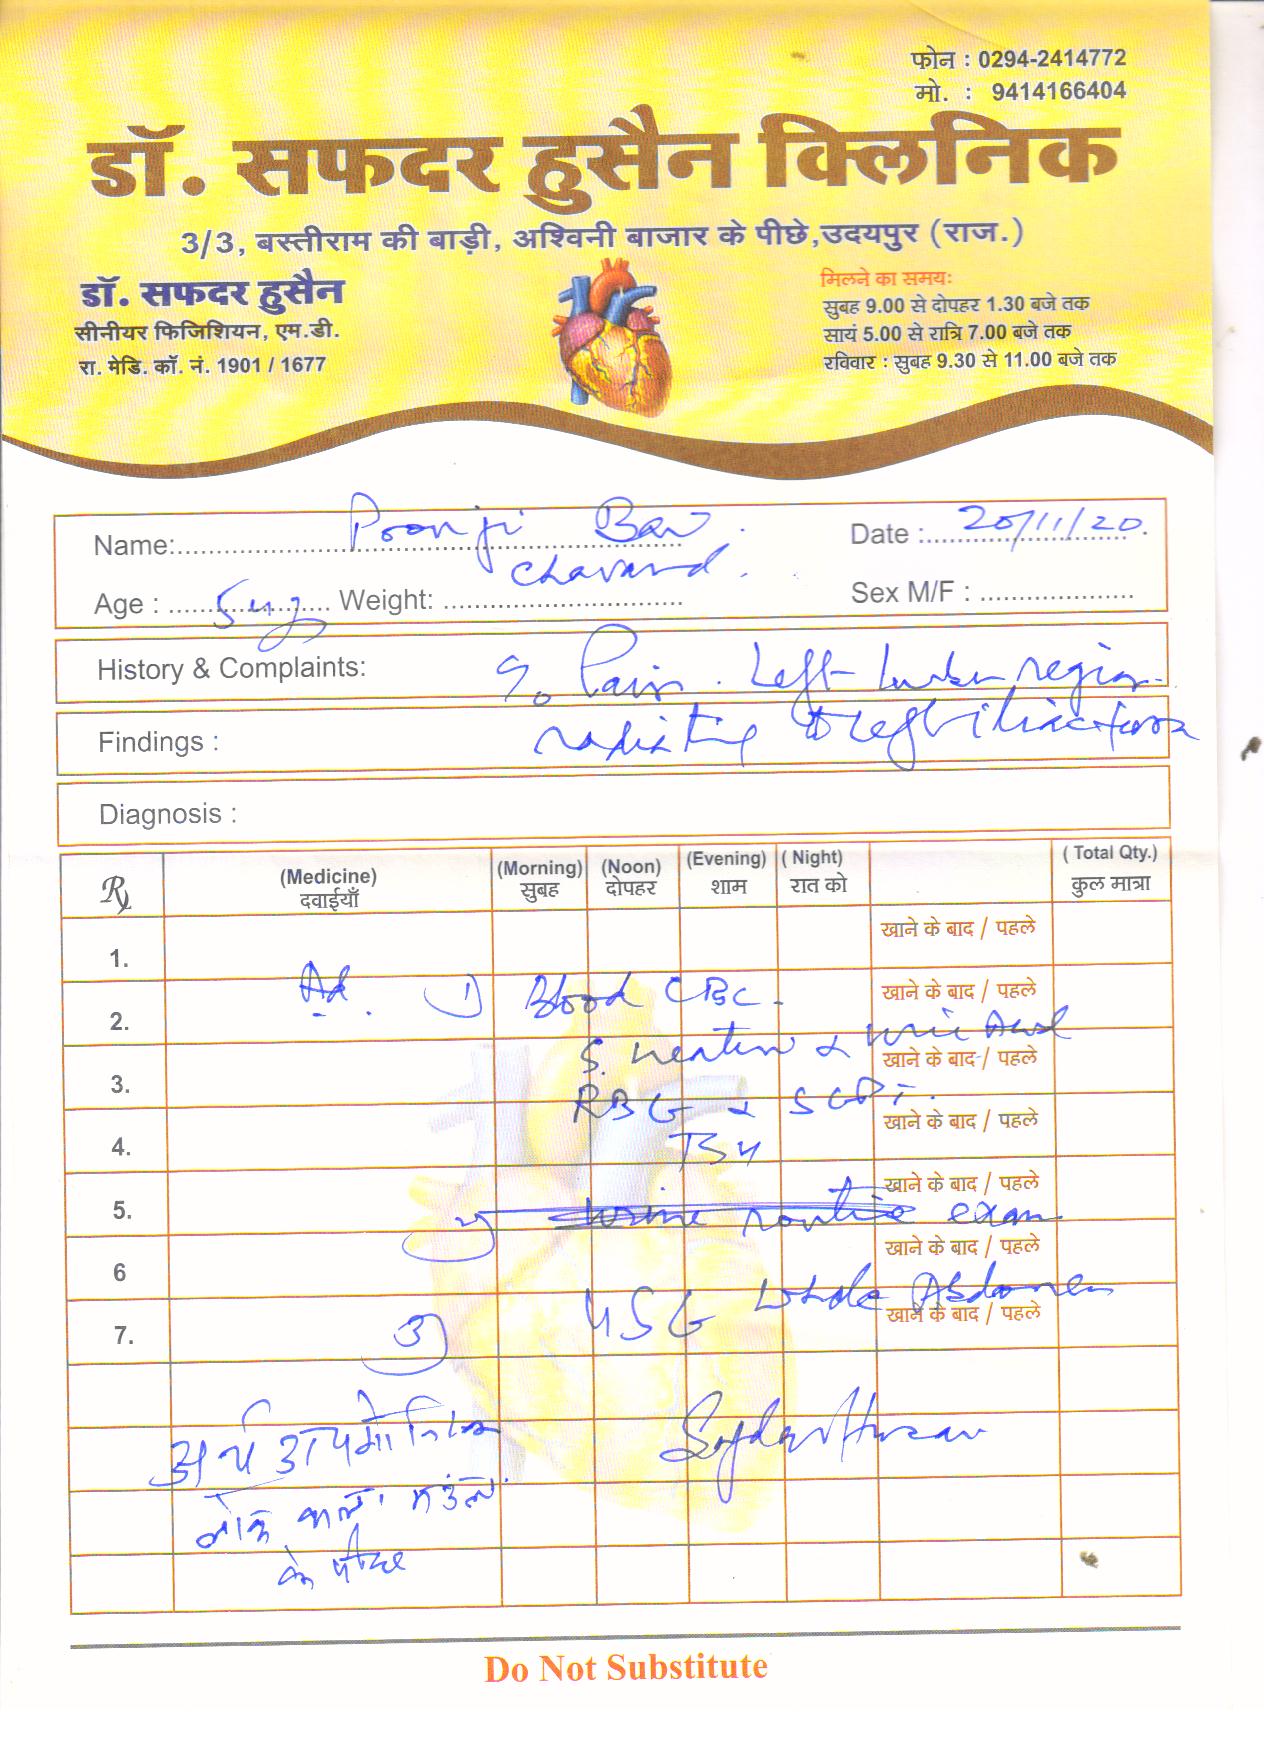 फोन : 0294-2414772
मो. : 9414166404
डॉ. सफदर हुसैन क्लिनिक
3/3, बस्तीराम की बाड़ी, अश्विनी बाजार के पीछे,उदयपुर (राज.)
डॉ. सफदर हुसैन
सीनीयर फिजिशियन, एम.डी.
रा. मेडि. कॉ. नं. 1901 / 1677
मिलने का समयः
सुबह 9.00 से दोपहर 1.30 बजे तक
सायं 5.00 से रात्रि 7.00 बजे तक
रविवार : सुबह 9.30 से 11.00 बजे तक
Name: Poonji Bai Date : 20/11/20.
Chavand.
Age : Weight: Sex M/F :
History & Complaints: Pain. Left region
Findings : radiating to
Diagnosis :
Rx (Medicine) (Morning) (Noon) (Evening) ( Night) ( Total Qty.)
दवाईयाँ सुबह दोपहर शाम रात को कुल मात्रा
1. खाने के बाद / पहले
2. Ad. 1) Blood CBC खाने के बाद / पहले
3. S. & खाने के बाद / पहले
4. RBG & SGPT. खाने के बाद / पहले
TSH
5. 2) urine routine exam खाने के बाद / पहले
6 खाने के बाद / पहले
7. 3) USG whole Abdomen खाने के बाद / पहले
के पीछे
Do Not Substitute